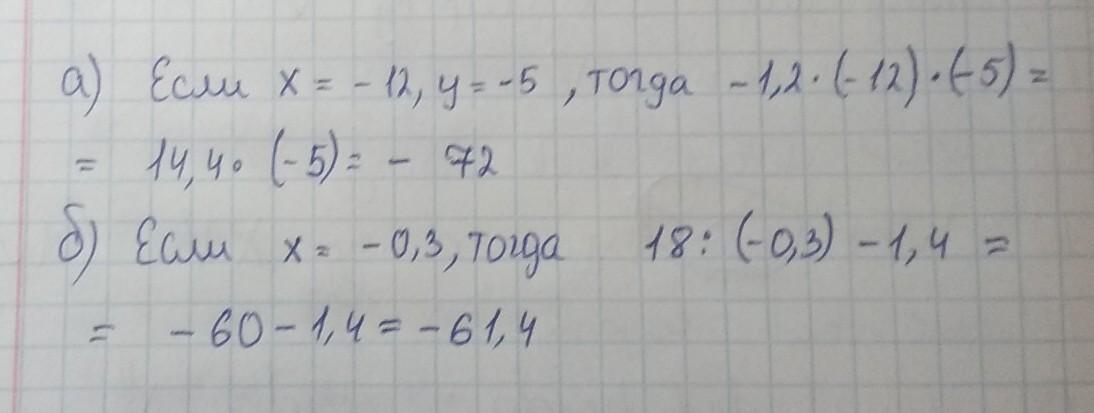 а) Если x = -12, y = -5, тогда -1,2·(-12)·(-5)=
= 14,4·(-5)= - 72
б) Если x = -0,3, тогда 18:(-0,3) -1,4 =
= -60-1,4=-61,4